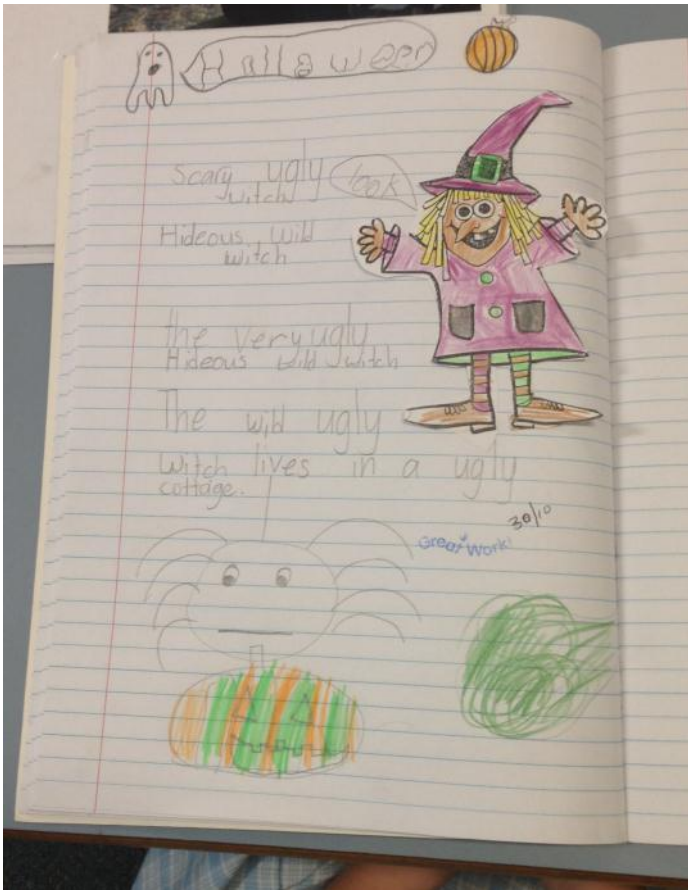 Halloween
Scary ugly
witch
look
Hideous wild
witch
the very ugly
Hideous wild witch
The wild ugly
witch lives in a ugly
cottage.
30/10
Great Work!